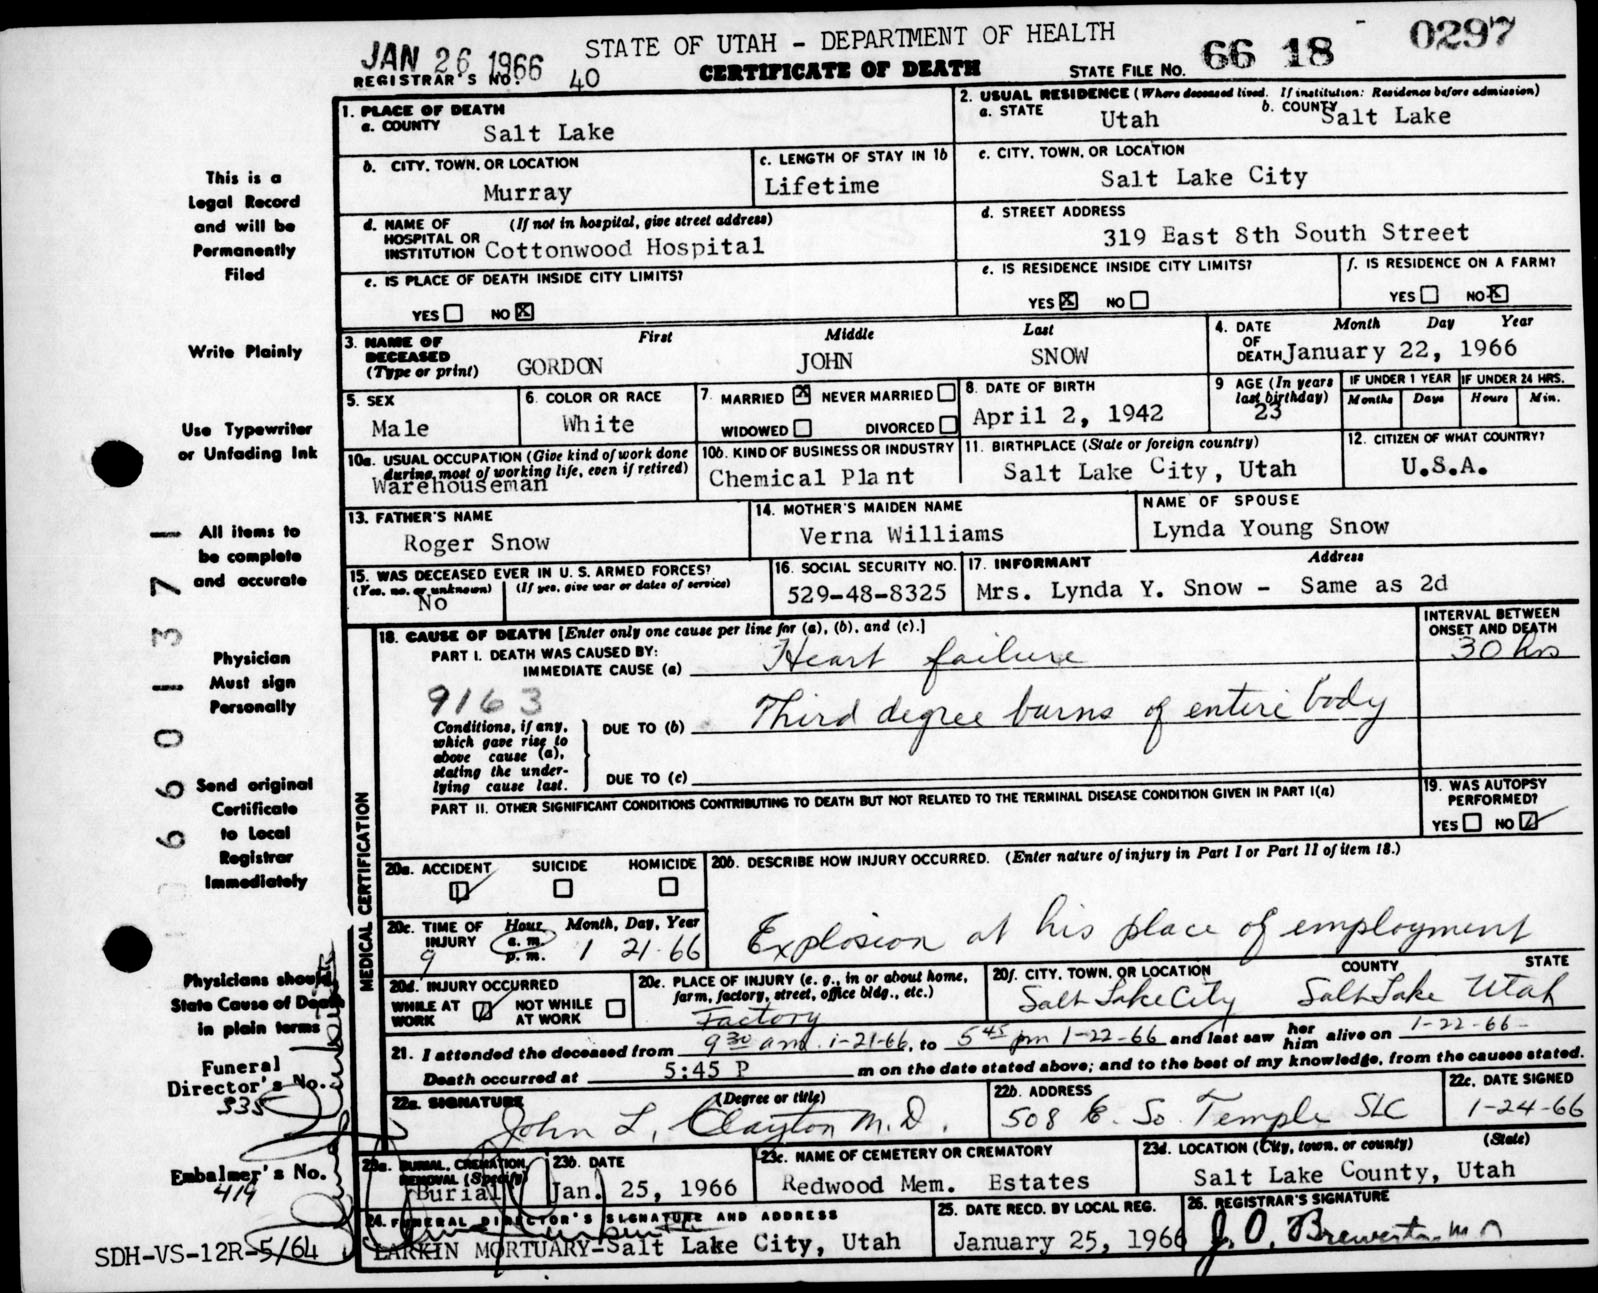 JAN 26 1966
STATE OF UTAH - DEPARTMENT OF HEALTH
REGISTRAR'S NO. 40
CERTIFICATE OF DEATH
STATE FILE NO. 66 18 0297
1. PLACE OF DEATH
a. COUNTY Salt Lake
2. USUAL RESIDENCE (Where deceased lived. If institution: Residence before admission)
a. STATE Utah
b. COUNTY Salt Lake
b. CITY, TOWN, OR LOCATION
Murray
c. LENGTH OF STAY IN 1b
Lifetime
c. CITY, TOWN, OR LOCATION
Salt Lake City
d. NAME OF HOSPITAL OR INSTITUTION (If not in hospital, give street address)
Cottonwood Hospital
d. STREET ADDRESS
319 East 8th South Street
e. IS PLACE OF DEATH INSIDE CITY LIMITS?
YES NO X
e. IS RESIDENCE INSIDE CITY LIMITS?
YES X NO
f. IS RESIDENCE ON A FARM?
YES NO X
3. NAME OF DECEASED (Type or print)
First Middle Last
GORDON JOHN SNOW
4. DATE OF DEATH
Month Day Year
January 22, 1966
5. SEX
Male
6. COLOR OR RACE
White
7. MARRIED X NEVER MARRIED
WIDOWED DIVORCED
8. DATE OF BIRTH
April 2, 1942
9 AGE (In years last birthday)
23
IF UNDER 1 YEAR
Months Days
IF UNDER 24 HRS.
Hours Min.
10a. USUAL OCCUPATION (Give kind of work done during most of working life, even if retired)
Warehouseman
10b. KIND OF BUSINESS OR INDUSTRY
Chemical Plant
11. BIRTHPLACE (State or foreign country)
Salt Lake City, Utah
12. CITIZEN OF WHAT COUNTRY?
U.S.A.
13. FATHER'S NAME
Roger Snow
14. MOTHER'S MAIDEN NAME
Verna Williams
NAME OF SPOUSE
Lynda Young Snow
15. WAS DECEASED EVER IN U. S. ARMED FORCES?
(Yes, no, or unknown) (If yes, give war or dates of service)
No
16. SOCIAL SECURITY NO.
529-48-8325
17. INFORMANT Address
Mrs. Lynda Y. Snow - Same as 2d
MEDICAL CERTIFICATION
18. CAUSE OF DEATH [Enter only one cause per line for (a), (b), and (c).]
INTERVAL BETWEEN ONSET AND DEATH
PART I. DEATH WAS CAUSED BY:
IMMEDIATE CAUSE (a) Heart failure 30 hrs
9163
Conditions, if any, which gave rise to above cause (a), stating the underlying cause last.
DUE TO (b) Third degree burns of entire body
DUE TO (c)
PART II. OTHER SIGNIFICANT CONDITIONS CONTRIBUTING TO DEATH BUT NOT RELATED TO THE TERMINAL DISEASE CONDITION GIVEN IN PART I(a)
19. WAS AUTOPSY PERFORMED?
YES NO
20a. ACCIDENT SUICIDE HOMICIDE
20b. DESCRIBE HOW INJURY OCCURRED. (Enter nature of injury in Part I or Part II of item 18.)
Explosion at his place of employment
20c. TIME OF INJURY
Hour Month, Day, Year
9 a.m. p.m. 1 21-66
20d. INJURY OCCURRED
WHILE AT WORK NOT WHILE AT WORK
20e. PLACE OF INJURY (e. g., in or about home, farm, factory, street, office bldg., etc.)
Factory
20f. CITY, TOWN, OR LOCATION COUNTY STATE
Salt Lake City Salt Lake Utah
21. I attended the deceased from 9 30 am 1-21-66, to 5 45 pm 1-22-66 and last saw her him alive on 1-22-66-
Death occurred at 5:45 P m on the date stated above; and to the best of my knowledge, from the causes stated.
22a. SIGNATURE (Degree or title)
John L. Clayton M.D.
22b. ADDRESS
508 E. So. Temple SLC
22c. DATE SIGNED
1-24-66
23a. BURIAL, CREMATION, REMOVAL (Specify)
Burial
23b. DATE
Jan. 25, 1966
23c. NAME OF CEMETERY OR CREMATORY
Redwood Mem. Estates
23d. LOCATION (City, town, or county) (State)
Salt Lake County, Utah
24. FUNERAL DIRECTOR'S SIGNATURE AND ADDRESS
LARKIN MORTUARY-Salt Lake City, Utah
25. DATE RECD. BY LOCAL REG.
January 25, 1966
26. REGISTRAR'S SIGNATURE
J. O. Brewerton M D
This is a
Legal Record
and will be
Permanently
Filed
Write Plainly
Use Typewriter
or Unfading Ink
All items to
be complete
and accurate
Physician
Must sign
Personally
Send original
Certificate
to Local
Registrar
Immediately
Physicians should
State Cause of Death
in plain terms
Funeral
Director's No.
335
Embalmer's No.
419
SDH-VS-12R-5/64
6601371